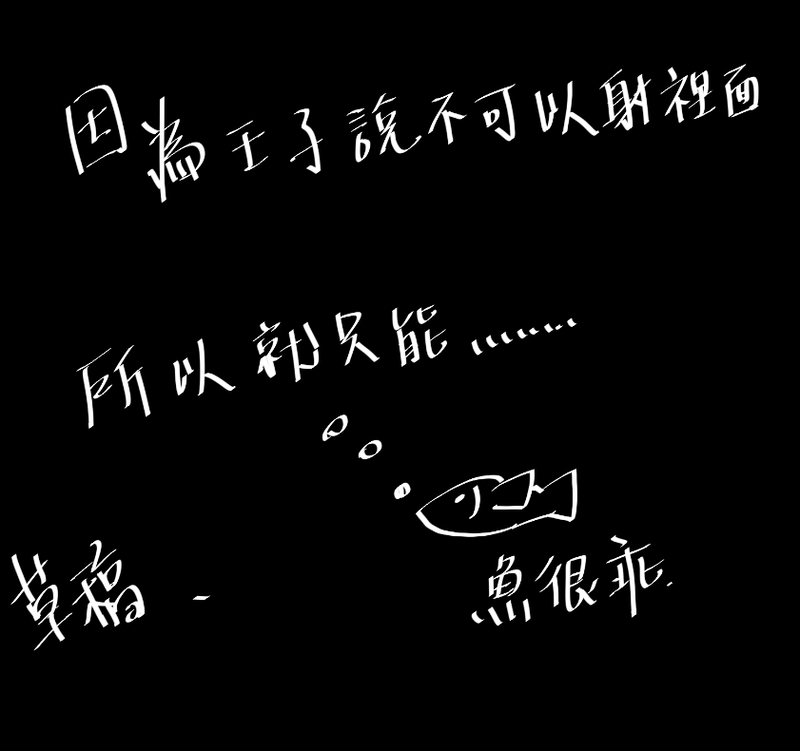 因為王子說不可以射裡面
所以就只能.......
草稿 -
魚很乖.